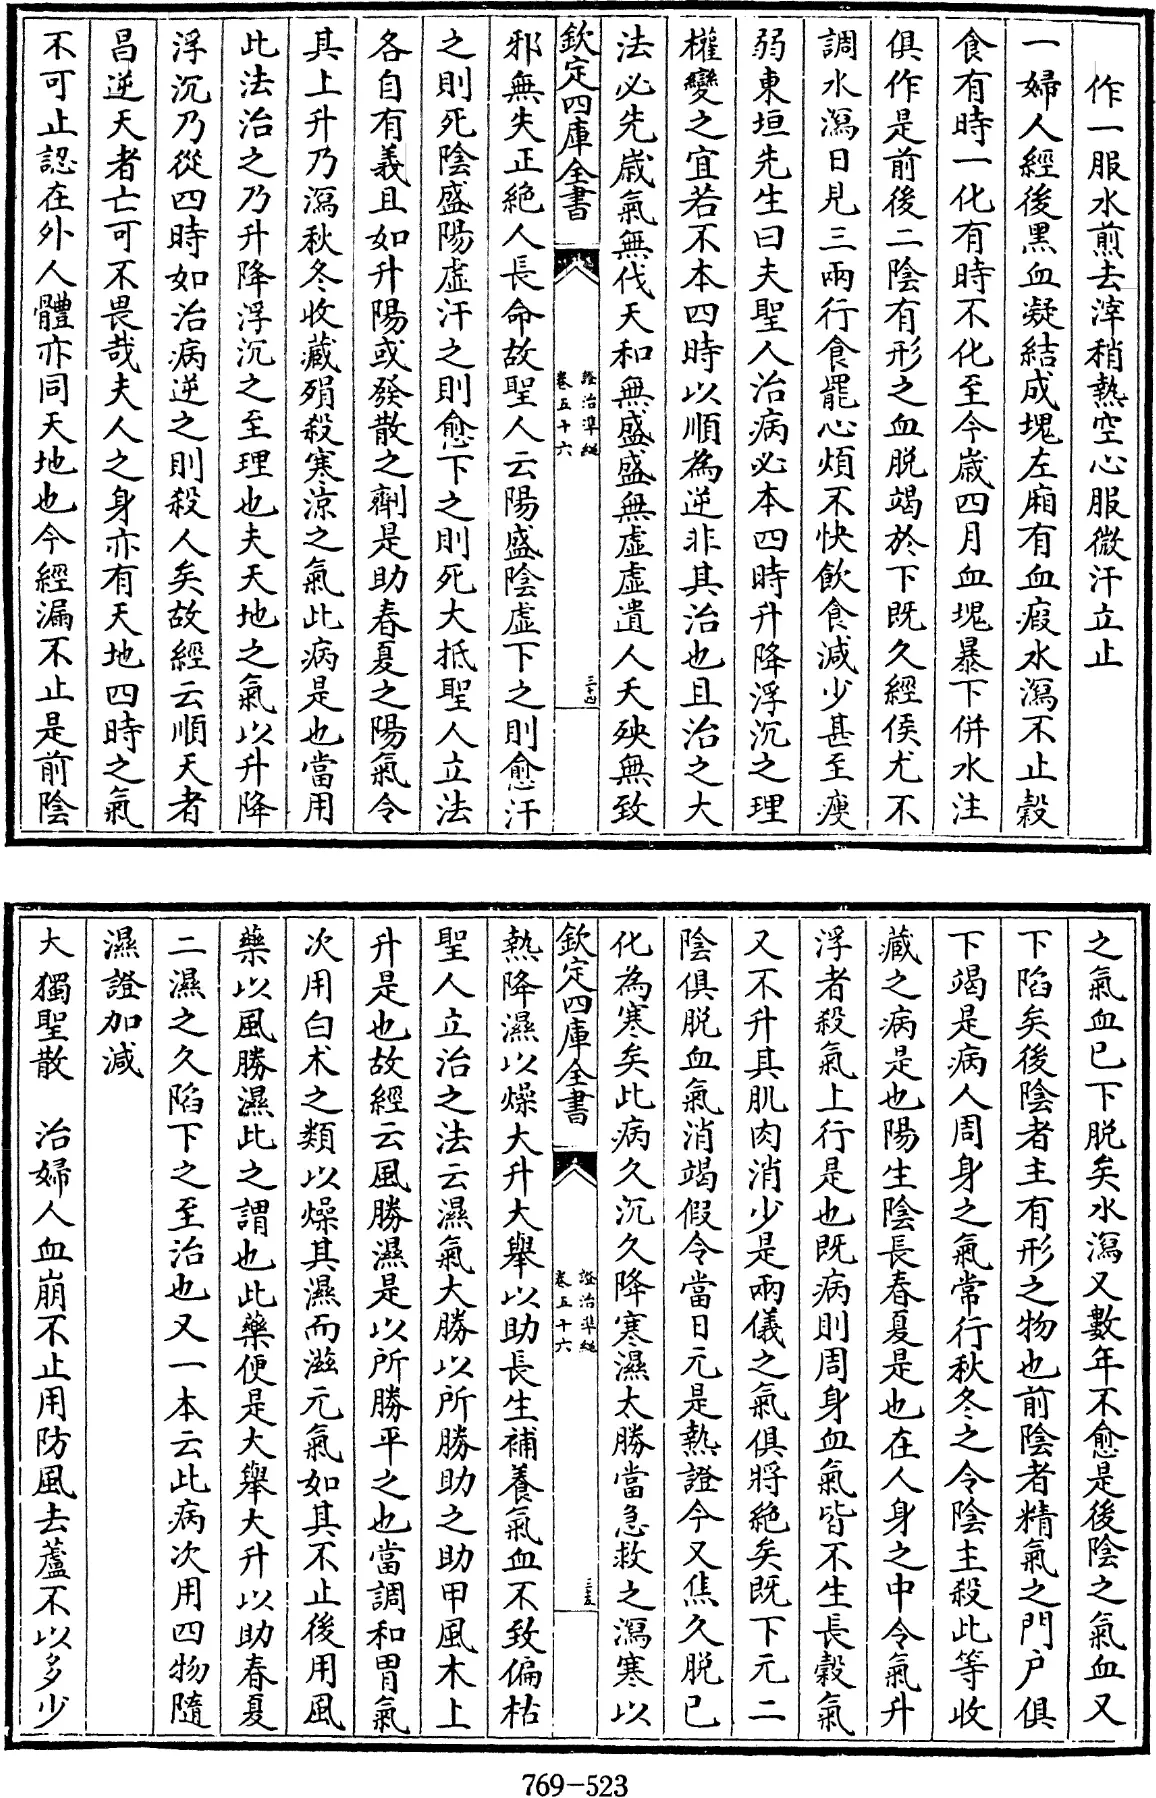 作一服水煎去滓稍熱空心服微汗立止
一婦人經後黑血凝結成塊左廂有血瘕水瀉不止穀
食有時一化有時不化至今歲四月血塊暴下併水注
俱作是前後二陰有形之血脱竭於下既久經侯尤不
調水瀉日見三兩行食罷心煩不快飲食減少甚至瘦
弱東垣先生曰夫聖人治病必本四時升降浮沉之理
權變之宜若不本四時以順為逆非其治也且治之大
法必先歲氣無伐天和無盛盛無虛虛遺人夭殃無致
欽定四庫全書
證治準繩
卷五十六
三十四
邪無失正絶人長命故聖人云陽盛陰虛下之則愈汗
之則死陰盛陽虛汗之則愈下之則死大抵聖人立法
各自有義且如升陽或發散之劑是助春夏之陽氣令
其上升乃瀉秋冬收藏殞殺寒涼之氣此病是也當用
此法治之乃升降浮沉之至理也夫天地之氣以升降
浮沉乃從四時如治病逆之則殺人矣故經云順天者
昌逆天者亡可不畏哉夫人之身亦有天地四時之氣
不可止認在外人體亦同天地也今經漏不止是前陰
之氣血已下脱矣水瀉又數年不愈是後陰之氣血又
下陷矣後陰者主有形之物也前陰者精氣之門户俱
下竭是病人周身之氣常行秋冬之令陰主殺此等收
藏之病是也陽生陰長春夏是也在人身之中令氣升
浮者殺氣上行是也既病則周身血氣皆不生長穀氣
又不升其肌肉消少是兩儀之氣俱將絶矣既下元二
陰俱脱血氣消竭假令當日元是熱證今又焦久脱已
化為寒矣此病久沉久降寒濕太勝當急救之瀉寒以
欽定四庫全書
證治準繩
卷五十六
三十五
熱降濕以燥大升大舉以助長生補養氣血不致偏枯
聖人立治之法云濕氣大勝以所勝助之助甲風木上
升是也故經云風勝濕是以所勝平之也當調和胃氣
次用白术之類以燥其濕而滋元氣如其不止後用風
藥以風勝濕此之謂也此藥便是大舉大升以助春夏
二濕之久陷下之至治也又一本云此病次用四物隨
濕證加減
大獨聖散　治婦人血崩不止用防風去蘆不以多少
769-523